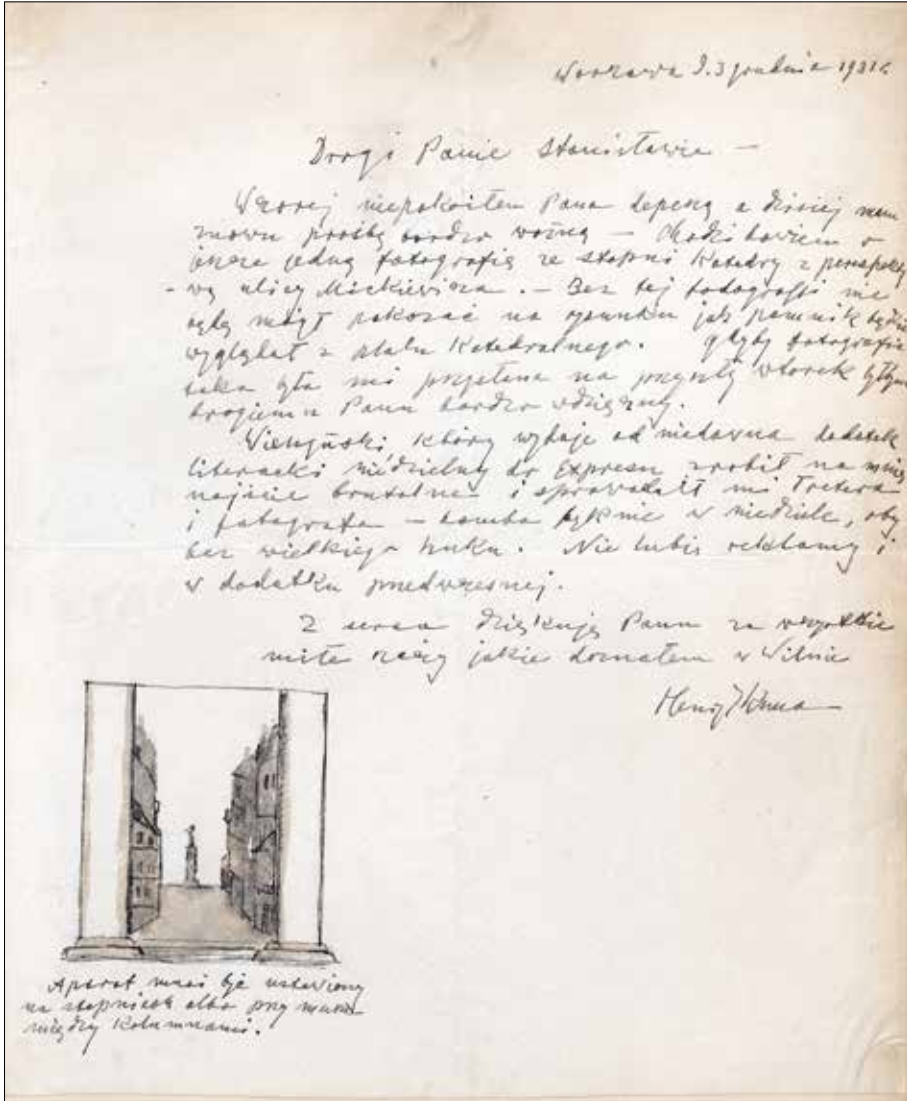 Warszawa d. 3 grudnia 1931 r.
Drogi Panie Stanisławie —
Wczoraj niepokoiłem Pana depeszą a dzisiaj mam
znowu prośbę bardzo ważną — Chodzi bowiem o
jeszcze jedną fotografię ze stopni Katedry z perspekty-
-wą ulicy Mickiewicza. — Bez tej fotografii nie
będę mógł pokazać na rysunku jak pomnik będzie
wyglądał z placu Katedralnego. Gdyby fotografia
taka była mi przysłana na przyszły wtorek byłbym
drogiemu Panu bardzo wdzięczny.
Wieniawski, który wydaje od niedawna dodatek
literacki niedzielny do Expresu zrobił na mnie
najście brutalne i sprowadził mi Tretera
i fotografa — bomba pęknie w niedzielę, oby
bez wielkiego huku. Nie lubię reklamy i
w dodatku przedwczesnej.
Z serca dziękuję Panu za wszystkie
miłe rzeczy jakie doznałem w Wilnie
Henryk Kuna
Aparat musi być ustawiony
na stopniach albo przy murze
między Kolumnami.